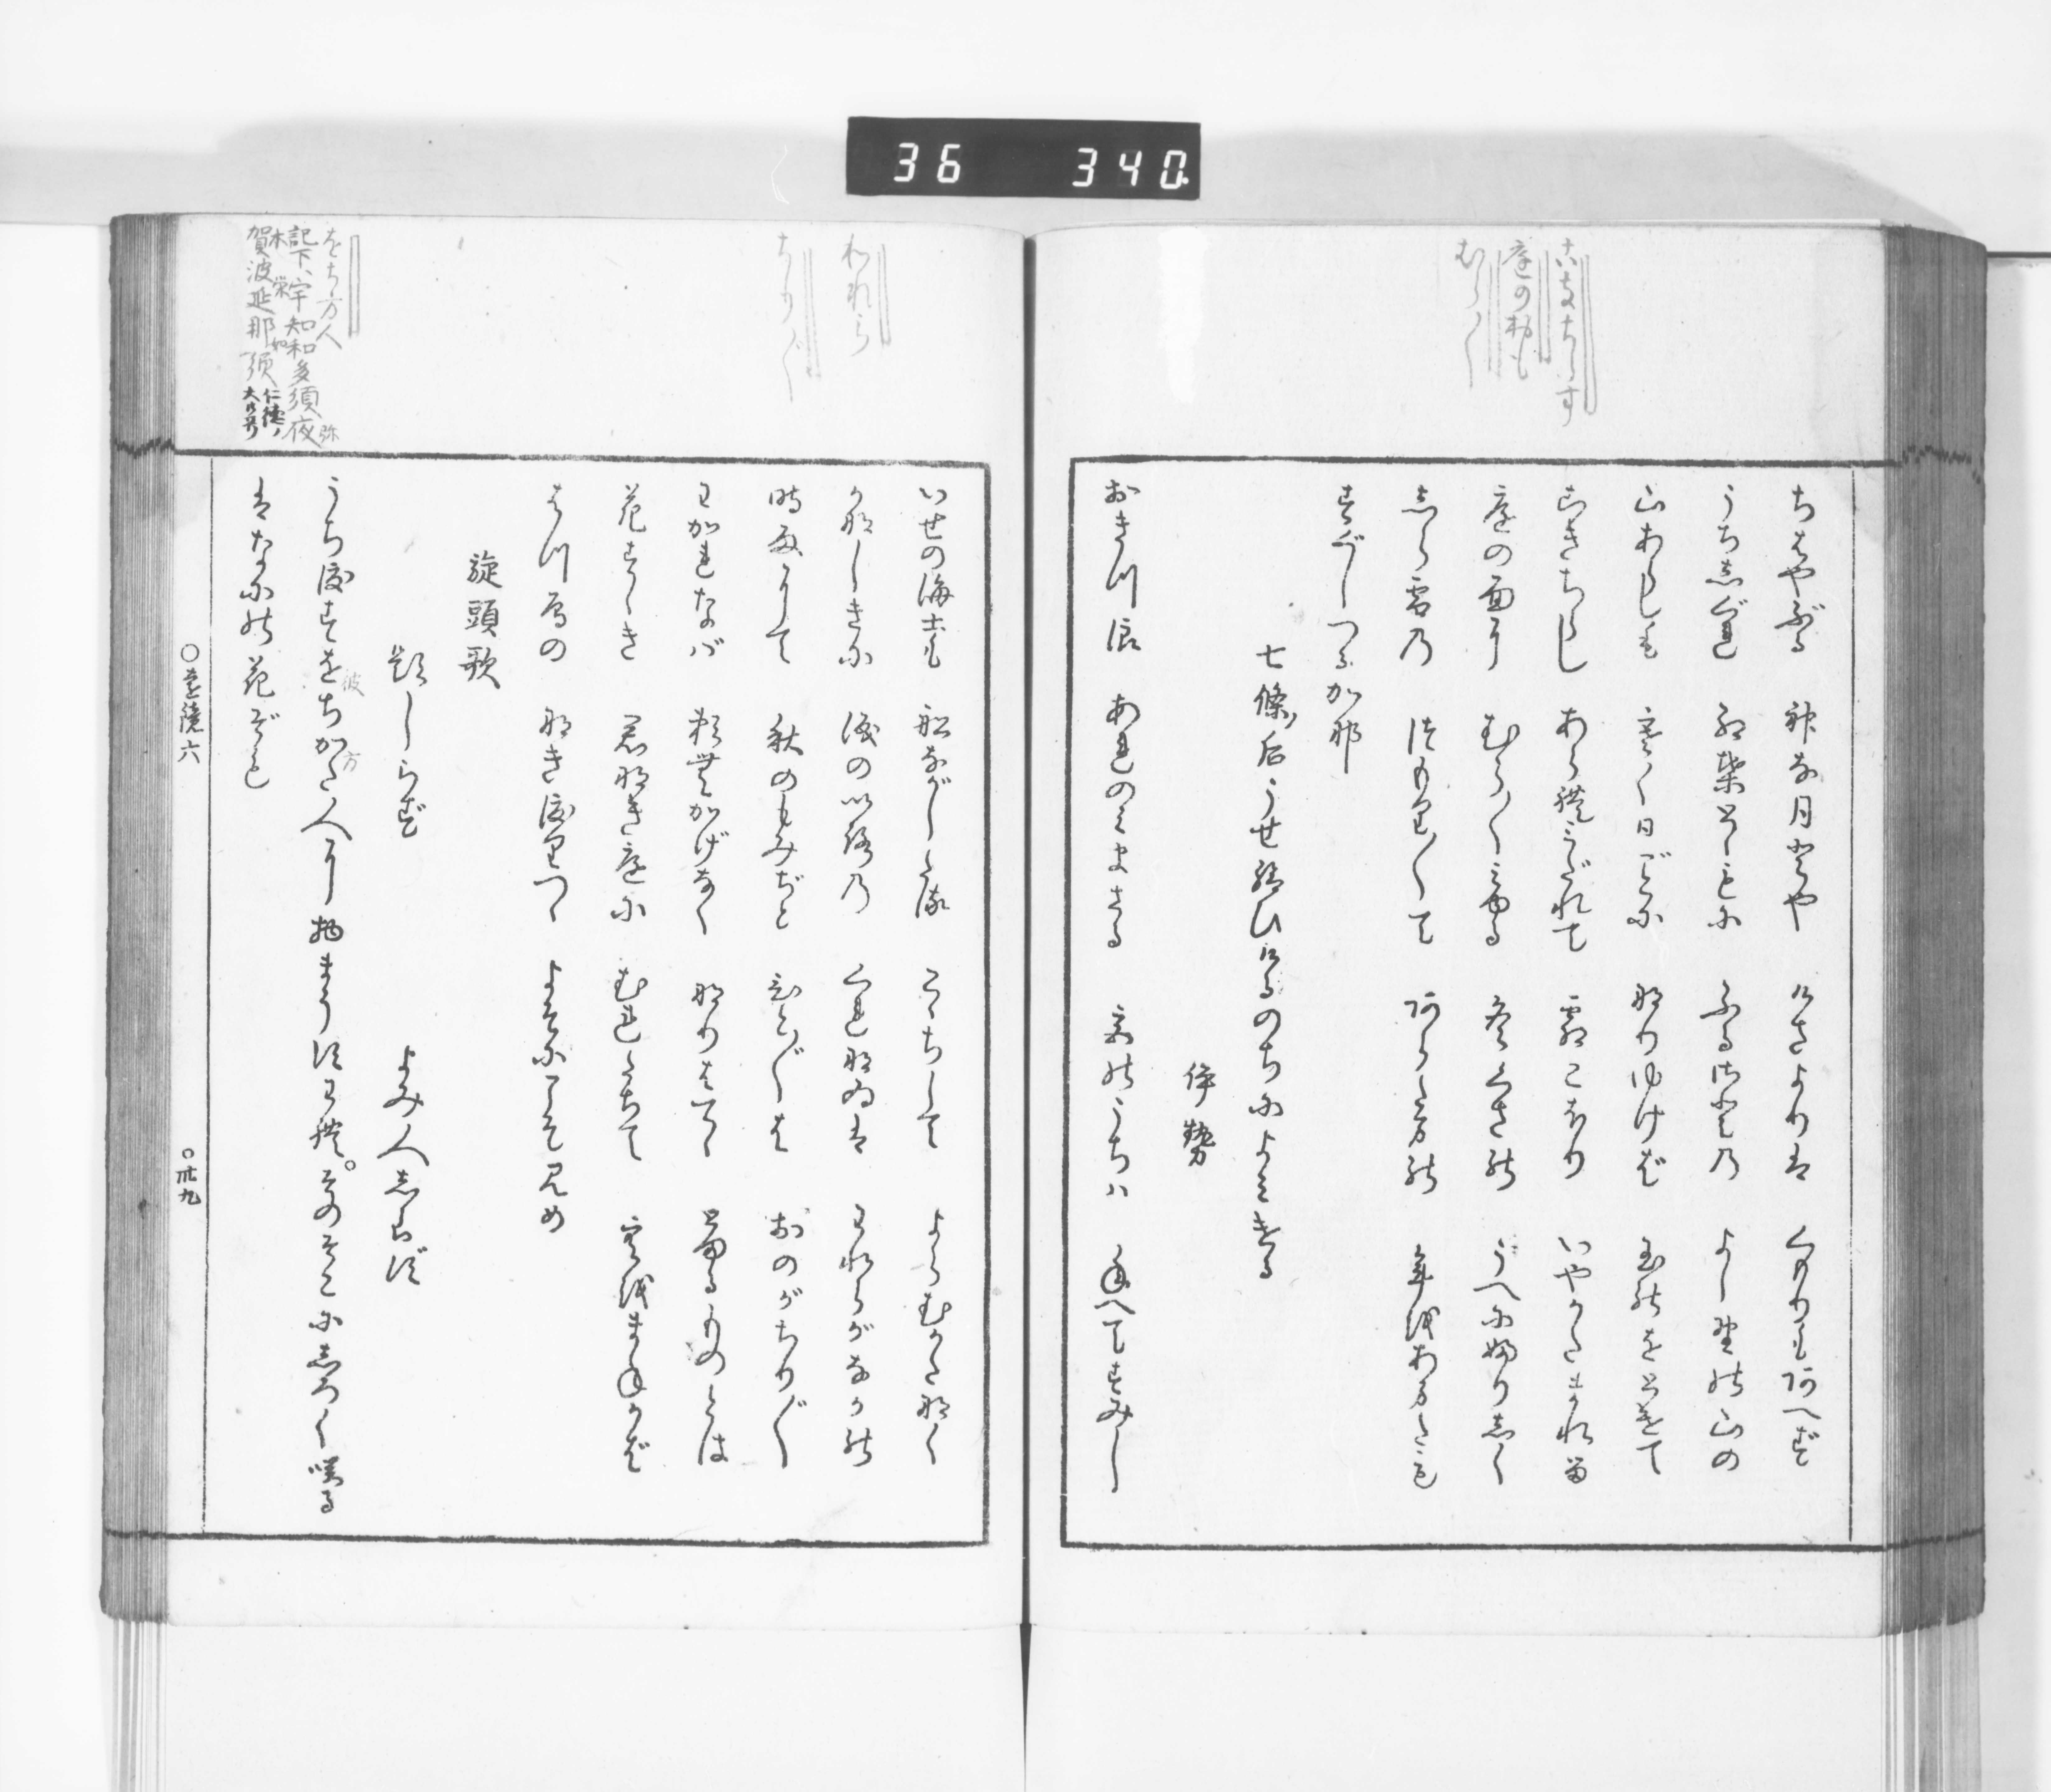 36 340
こきちらす
庭の面も
むら〳〵
ちはやぶる 神な月とや けさよりは くもりもあへず
うちしぐれ 紅葉とゝもに ふるさとの よし野の山の
山あらしも 寒く日ごとに なりゆけば 玉のをとけて
こきちらし あられみだれて 霜こほり いやかたまれる
庭の面に むら〳〵みゆる 冬くさの うへにふりしく
しら雪の つもり〳〵て あらたまの 年をあまたも
すぐしつるかな
七條ノ后うせ給ひけるのちによみける
伊勢
おきつ浪 あれのみまさる 宮のうちは 年へてすみし
われら
ちり〴〵
をち方人
記下、宇知和多須夜
賀波延那須
仁徳ノ
大御哥
いせの海士も 船ながしたる こゝちして よらむかたなく
かなしきに 涙の色の くれなゐは われらがなかの
時雨にて 秋のもみぢと ひと〴〵は おのがちり〴〵
わかれなば 頼むかげなく なりはてゝ とまるものとは
花すゝき 君なき庭に むれたちて 空をまねかば
はつ雁の なき渡りつゝ よそにこそ見め
旋頭歌
題しらず よみ人しらず
うち渡すをちかた人に物まうすわれ。そのそこにしろく咲る
彼
方
はなにの花ぞも
〇遠鏡六 〇卅九